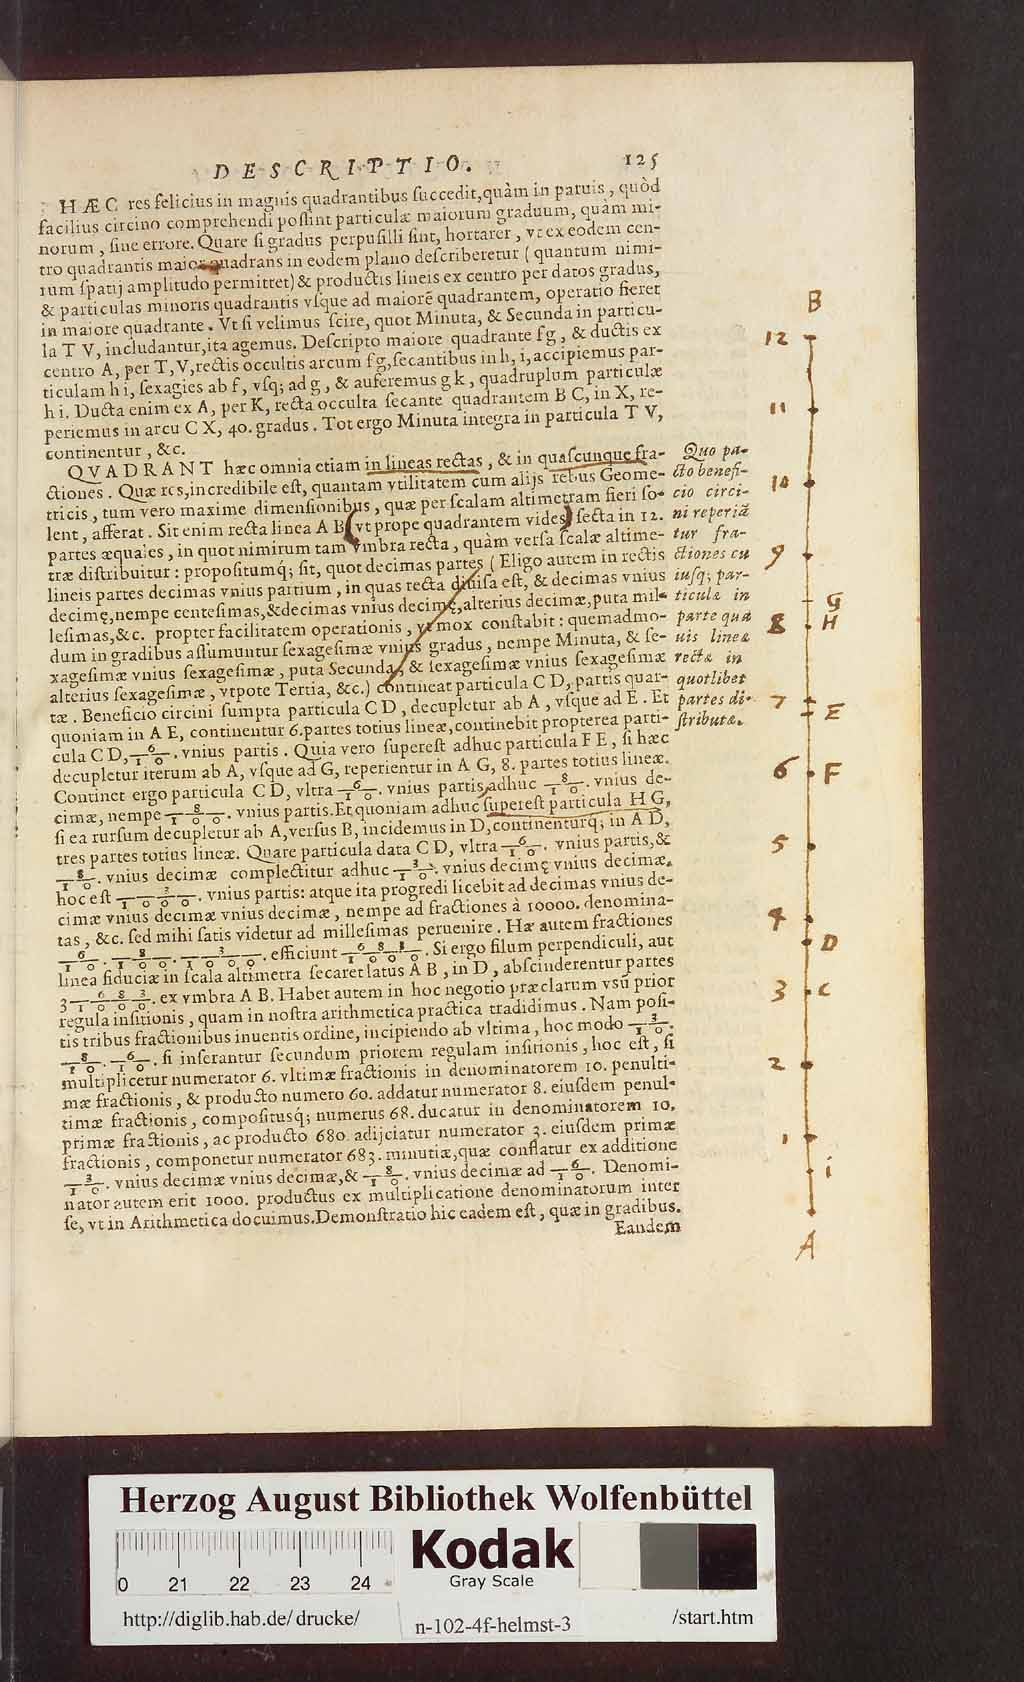 DESCRIPTIO. 125
HÆC res felicius in magnis quadrantibus succedit, quàm in paruis, quòd
facilius circino comprehendi possint particulæ maiorum graduum, quàm mi-
norum, sine errore. Quare si gradus perpusilli sint, hortarer, vt ex eodem cen-
tro quadrantis maior quadrans in eodem plano describeretur (quantum nimi-
rum spatij amplitudo permittet) & productis lineis ex centro per datos gradus,
& particulas minoris quadrantis vsque ad maiorē quadrantem, operatio fieret
in maiore quadrante. Vt si velimus scire, quot Minuta, & Secunda in particu-
la T V, includantur, ita agemus. Descripto maiore quadrante fg, & ductis ex
centro A, per T, V, rectis occultis arcum fg, secantibus in h, i, accipiemus par-
ticulam h i, sexagies ab f, vsq; ad g, & auferemus g k, quadruplum particulæ
h i. Ducta enim ex A, per K, recta occulta secante quadrantem B C, in X, re-
periemus in arcu C X, 40. gradus. Tot ergo Minuta integra in particula T V,
continentur, &c.
QVADRANT hæc omnia etiam in lineas rectas, & in quascunque fra-
ctiones. Quæ res, incredibile est, quantam vtilitatem cum alijs rebus Geome-
tricis, tum vero maxime dimensionibus, quæ per scalam altimetram fieri so-
lent, afferat. Sit enim recta linea A B (vt prope quadrantem vides) secta in 12.
partes æquales, in quot nimirum tam vmbra recta, quàm versa scalæ altime-
træ distribuitur: propositumq; sit, quot decimas partes (Eligo autem in rectis
lineis partes decimas vnius partium, in quas recta diuisa est, & decimas vnius
decimę, nempe centesimas, & decimas vnius decimę, alterius decimæ, puta mil-
lesimas, &c. propter facilitatem operationis, vt mox constabit: quemadmo-
dum in gradibus assumuntur sexagesimæ vnius gradus, nempe Minuta, & se-
xagesimæ vnius sexagesimæ, puta Secunda, & sexagesimæ vnius sexagesimæ
alterius sexagesimæ, vtpote Tertia, &c.) contineat particula C D, partis quar-
tæ. Beneficio circini sumpta particula C D, decupletur ab A, vsque ad E. Et
quoniam in A E, continentur 6. partes totius lineæ, continebit propterea parti-
cula C D, 6/10. vnius partis. Quia vero superest adhuc particula F E, si hæc
decupletur iterum ab A, vsque ad G, reperientur in A G, 8. partes totius lineæ.
Continet ergo particula C D, vltra 6/10. vnius partis, adhuc 8/10. vnius de-
cimæ, nempe 8/100. vnius partis. Et quoniam adhuc superest particula H G,
si ea rursum decupletur ab A, versus B, incidemus in D, continenturq; in A D,
tres partes totius lineæ. Quare particula data C D, vltra 6/10. vnius partis, &
8/10. vnius decimæ complectitur adhuc 3/10. vnius decimę vnius decimæ,
hoc est 3/1000. vnius partis: atque ita progredi licebit ad decimas vnius de-
cimæ vnius decimæ vnius decimæ, nempe ad fractiones à 10000. denomina-
tas, &c. sed mihi satis videtur ad millesimas peruenire. Hæ autem fractiones
6/10. 8/100. 3/1000. efficiunt 683/1000. Si ergo filum perpendiculi, aut
linea fiduciæ in scala altimetra secaret latus A B, in D, abscinderentur partes
3 683/1000. ex vmbra A B. Habet autem in hoc negotio præclarum vsū prior
regula insitionis, quam in nostra arithmetica practica tradidimus. Nam posi-
tis tribus fractionibus inuentis ordine, incipiendo ab vltima, hoc modo 3/10.
8/10. 6/10. si inserantur secundum priorem regulam insitionis, hoc est, si
multiplicetur numerator 6. vltimæ fractionis in denominatorem 10. penulti-
mæ fractionis, & producto numero 60. addatur numerator 8. eiusdem penul-
timæ fractionis, compositusq; numerus 68. ducatur in denominatorem 10.
primæ fractionis, ac producto 680. adijciatur numerator 3. eiusdem primæ
fractionis, componetur numerator 683. minutiæ, quæ conflatur ex additione
3/10. vnius decimæ vnius decimæ, & 8/10. vnius decimæ ad 6/10. Denomi-
nator autem erit 1000. productus ex multiplicatione denominatorum inter
se, vt in Arithmetica docuimus. Demonstratio hic eadem est, quæ in gradibus.
Eandem
Quo pa-
cto benefi-
cio circi-
ni reperiā
tur fra-
ctiones cu
iusq; par-
ticulæ in
parte qua
uis lineæ
rectæ in
quotlibet
partes di-
stributæ.
B
12
11
10
9
G
8 H
7
E
6 F
5
4
D
3 C
2
1
i
A
Herzog August Bibliothek Wolfenbüttel
Kodak
Gray Scale
0 21 22 23 24
http://diglib.hab.de/drucke/ n-102-4f-helmst-3 /start.htm